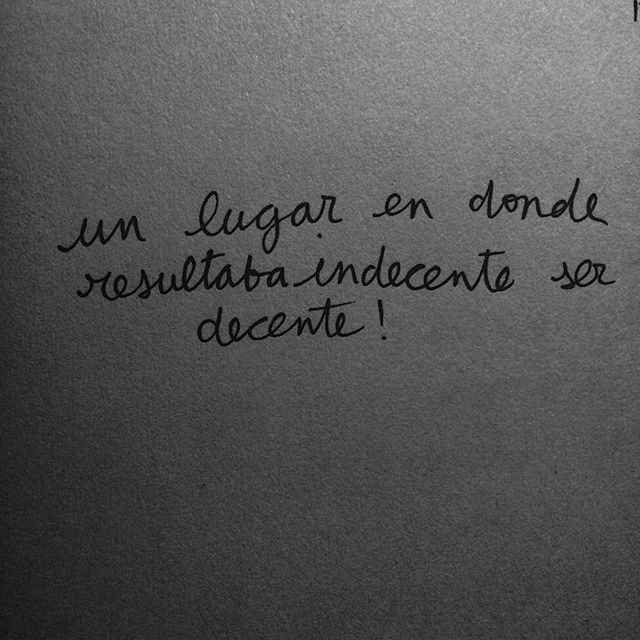 un lugar en donde
resultaba indecente ser
decente!